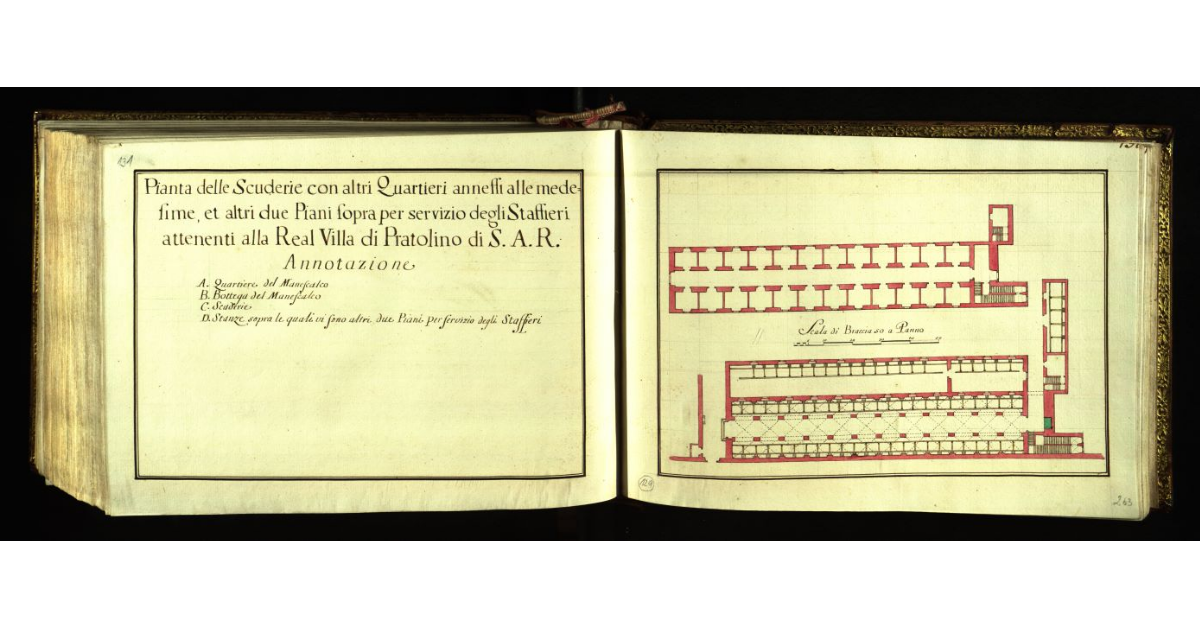 131
Pianta delle Scuderie con altri Quartieri annessi alle mede=
sime, et altri due Piani sopra per servizio degli Staffieri
attenenti alla Real Villa di Pratolino di S. A. R.
Annotazione
A. Quartiere del Manescalco
B. Bottega del Manescalco
C. Scuderie
D. Stanze sopra le quali vi sono altri due Piani per servizio degli Staffieri
Scala di Braccia 50 a Panno
124
263